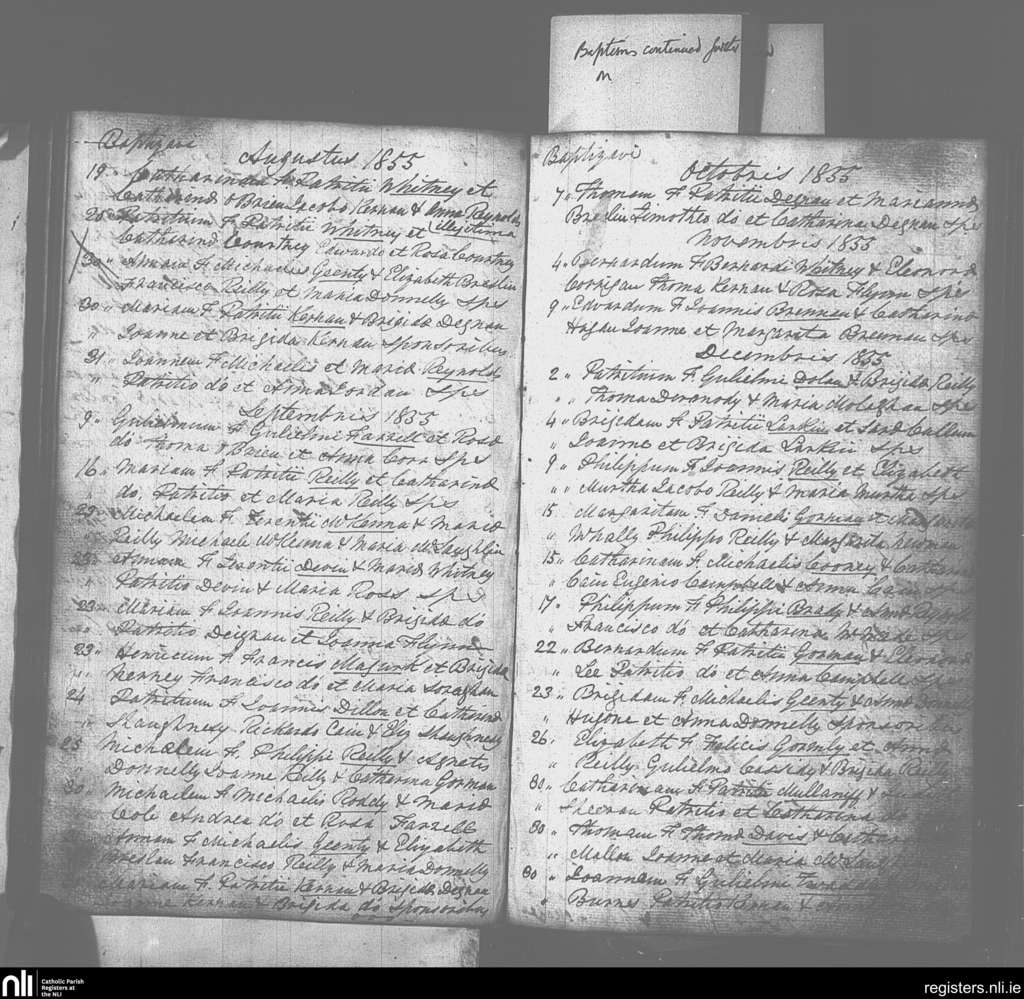 Baptisms continued
Baptizavi
Augustus 1855
19 " Catharinam F. Patritii Whitney et
Catharinæ O Brien Jacobo Kernan & Anna Reynolds
Patritium F. Patritii Whitney et illegitima
Catharinæ Courtney Edwardo et Rosa Courtney
30 " Annam F. Michaelis Geenty & Elizabeth Breslin
Francisco Reilly et Maria Donnelly Sps
30 " Mariam F. Patritii Kernan & Brigidæ Degnan
" Joanne et Brigida Kernan Sponsoribus
31 " Joannem F. Michaelis et Mariæ Reynolds
" Patritio do et Anna Jordan Sps
Septembris 1855
9 " Gulielmum F. Gulielmi Farrell et Rosæ
do Thoma O Brien et Anna Corr Sps
16 " Mariam F. Patritii Reilly et Catharinæ
" do, Patritio et Maria Reilly Sps
Michaelem F. Terentii McKenna & Mariæ
Reilly Michaele McKenna & Maria McLaughlin
23 " Annam F. Terentii Devin & Mariæ Whitney
" Patritio Devin & Maria Ross Sps
23 " Mariam F. Joannis Reilly & Brigidæ do
Patritio Deignan et Joanna Flynn
23 " Henricum F. Francis Maguire et Brigidæ
Kerney Francisco do et Maria Soraghan
24 Patritium F. Joannis Dillon et Catharinæ
Shaughnesy Richardo Cain & Eliz Shaughnesy
25 Michaelem F. Philippi Reilly & Agnetis
Donnelly Joanne Reilly & Catharina Gorman
30 " Michaelem F. Michaelis Roddy & Mariæ
Cole Andrea do et Rosa Farrell
Annam F. Michaelis Geenty & Elizabeth
Breslan Francisco Reilly & Maria Donnelly
Mariam F. Patritii Kernan & Brigidæ Degnan
Joanne Kernan & Brigida do Sponsoribus
Baptizavi
Octobris 1855
7 " Thomam F. Patritii Degnan et Mariannæ
Breslin Timotheo do et Catharina Degnan Sps
Novembris 1855
4 " Bernardum F. Bernardi Whitney & Eleonoræ
Corrigan Thoma Kernan & Rosa Flynn Sps
9 " Edvardum F. Joannis Brennan & Catharinæ
Hagan Joanne et Margarita Brennan Sps
Decembris 1855
2 " Patritium F. Gulielmi Dolan & Brigidæ Reilly
" " Thoma Dermody & Maria Molaghan Sps
4 " Brigidam F. Patritii Larkin et Saræ Callum
" Joanne et Brigida Larkin Sps
9 " Philippum F. Joannis Reilly et Elizabeth
" " Murtha Jacobo Reilly & Maria Murtha Sps
15 Margaritam F. Danieli Gorman et
" Whally Philippo Reilly & Margarita Newman
15 " Catharinam F. Michaelis Cooney &
" Cain Eugenio Campbell & Anna Cain
17 " Philippum F. Philippi Brady & Annæ
" Francisco do et Catharina McCabe Sps
22 " Bernardum F. Patritii Gorman & Eleonoræ
" Lee Patritio do et Anna Campbell Sps
23 " Brigidam F. Michaelis Geenty & Annæ Donnelly
" Hugone et Anna Donnelly Sponsoribus
26 " Elizabeth F. Felicis Gormly et Annæ
" Reilly Gulielmo Cassidy & Brigida Reilly
30 " Catharinam F. Patritii Mullaniff &
" Sheeran Patritio et Catharina do
30 " Thomam F. Thomæ Davis & Cathar
" Mallon Joanne et Maria
30 " Joannem F. Gulielmi
" Burnes Patritio Kernan &
nli
Catholic Parish
Registers at
the NLI
registers.nli.ie